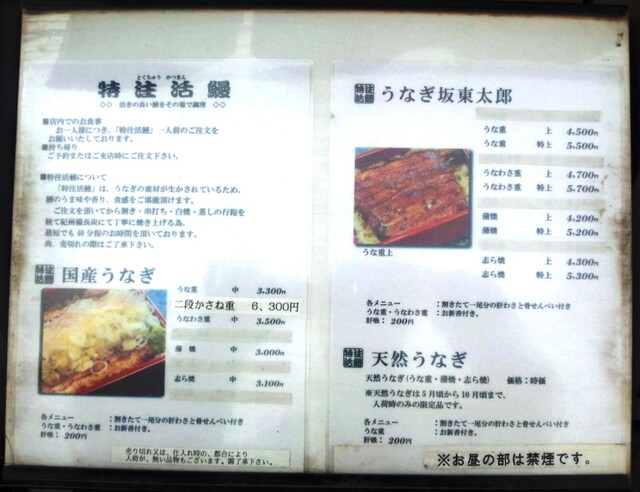 とくちゅう かつまん
特注活鰻
◇◇ 活きの良い鰻をその場で調理 ◇◇
■店内でのお食事
お一人様につき、「特注活鰻」一人前のご注文を
お願いいたしております。
■持ち帰り
ご予約またはご来店時にご注文下さい。
■特注活鰻について
「特注活鰻」は、うなぎの素材が生かされているため、
鰻のうま味や香り、食感をご堪能頂けます。
ご注文を頂いてから割き・串打ち・白焼・蒸しの行程を
経て紀州備長炭にて丁寧に焼き上げる為、
最短でも40分程のお時間を頂いております。
尚、売切れの際はご了承下さい。
特注活鰻 国産うなぎ
うな重 中 3,300円
二段かさね重 6、300円
うなわさ重 中 3,500円
蒲焼 中 3,000円
志ら焼 中 3,100円
各メニュー :割きたて一尾分の肝わさと骨せんべい付き
うな重・うなわさ重 :お新香付き。
肝吸:200円
売り切れ又は、仕入れ時の、都合により
入荷が、無い品物もございます。御了承下さい。
特注活鰻 うなぎ坂東太郎
うな重 上 4,500円
うな重 特上 5,500円
うなわさ重 上 4,700円
うなわさ重 特上 5,700円
蒲焼 上 4,200円
蒲焼 特上 5,200円
志ら焼 上 4,300円
志ら焼 特上 5,300円
うな重上
各メニュー :割きたて一尾分の肝わさと骨せんべい付き
うな重・うなわさ重 :お新香付き。
肝吸:200円
特注活鰻 天然うなぎ
天然うなぎ(うな重・蒲焼・志ら焼) 価格:時価
※天然うなぎは5月頃から10月頃まで、
入荷時のみの限定品です。
各メニュー :割きたて一尾分の肝わさと骨せんべい付き
うな重 :お新香付き。
肝吸:200円
※お昼の部は禁煙です。